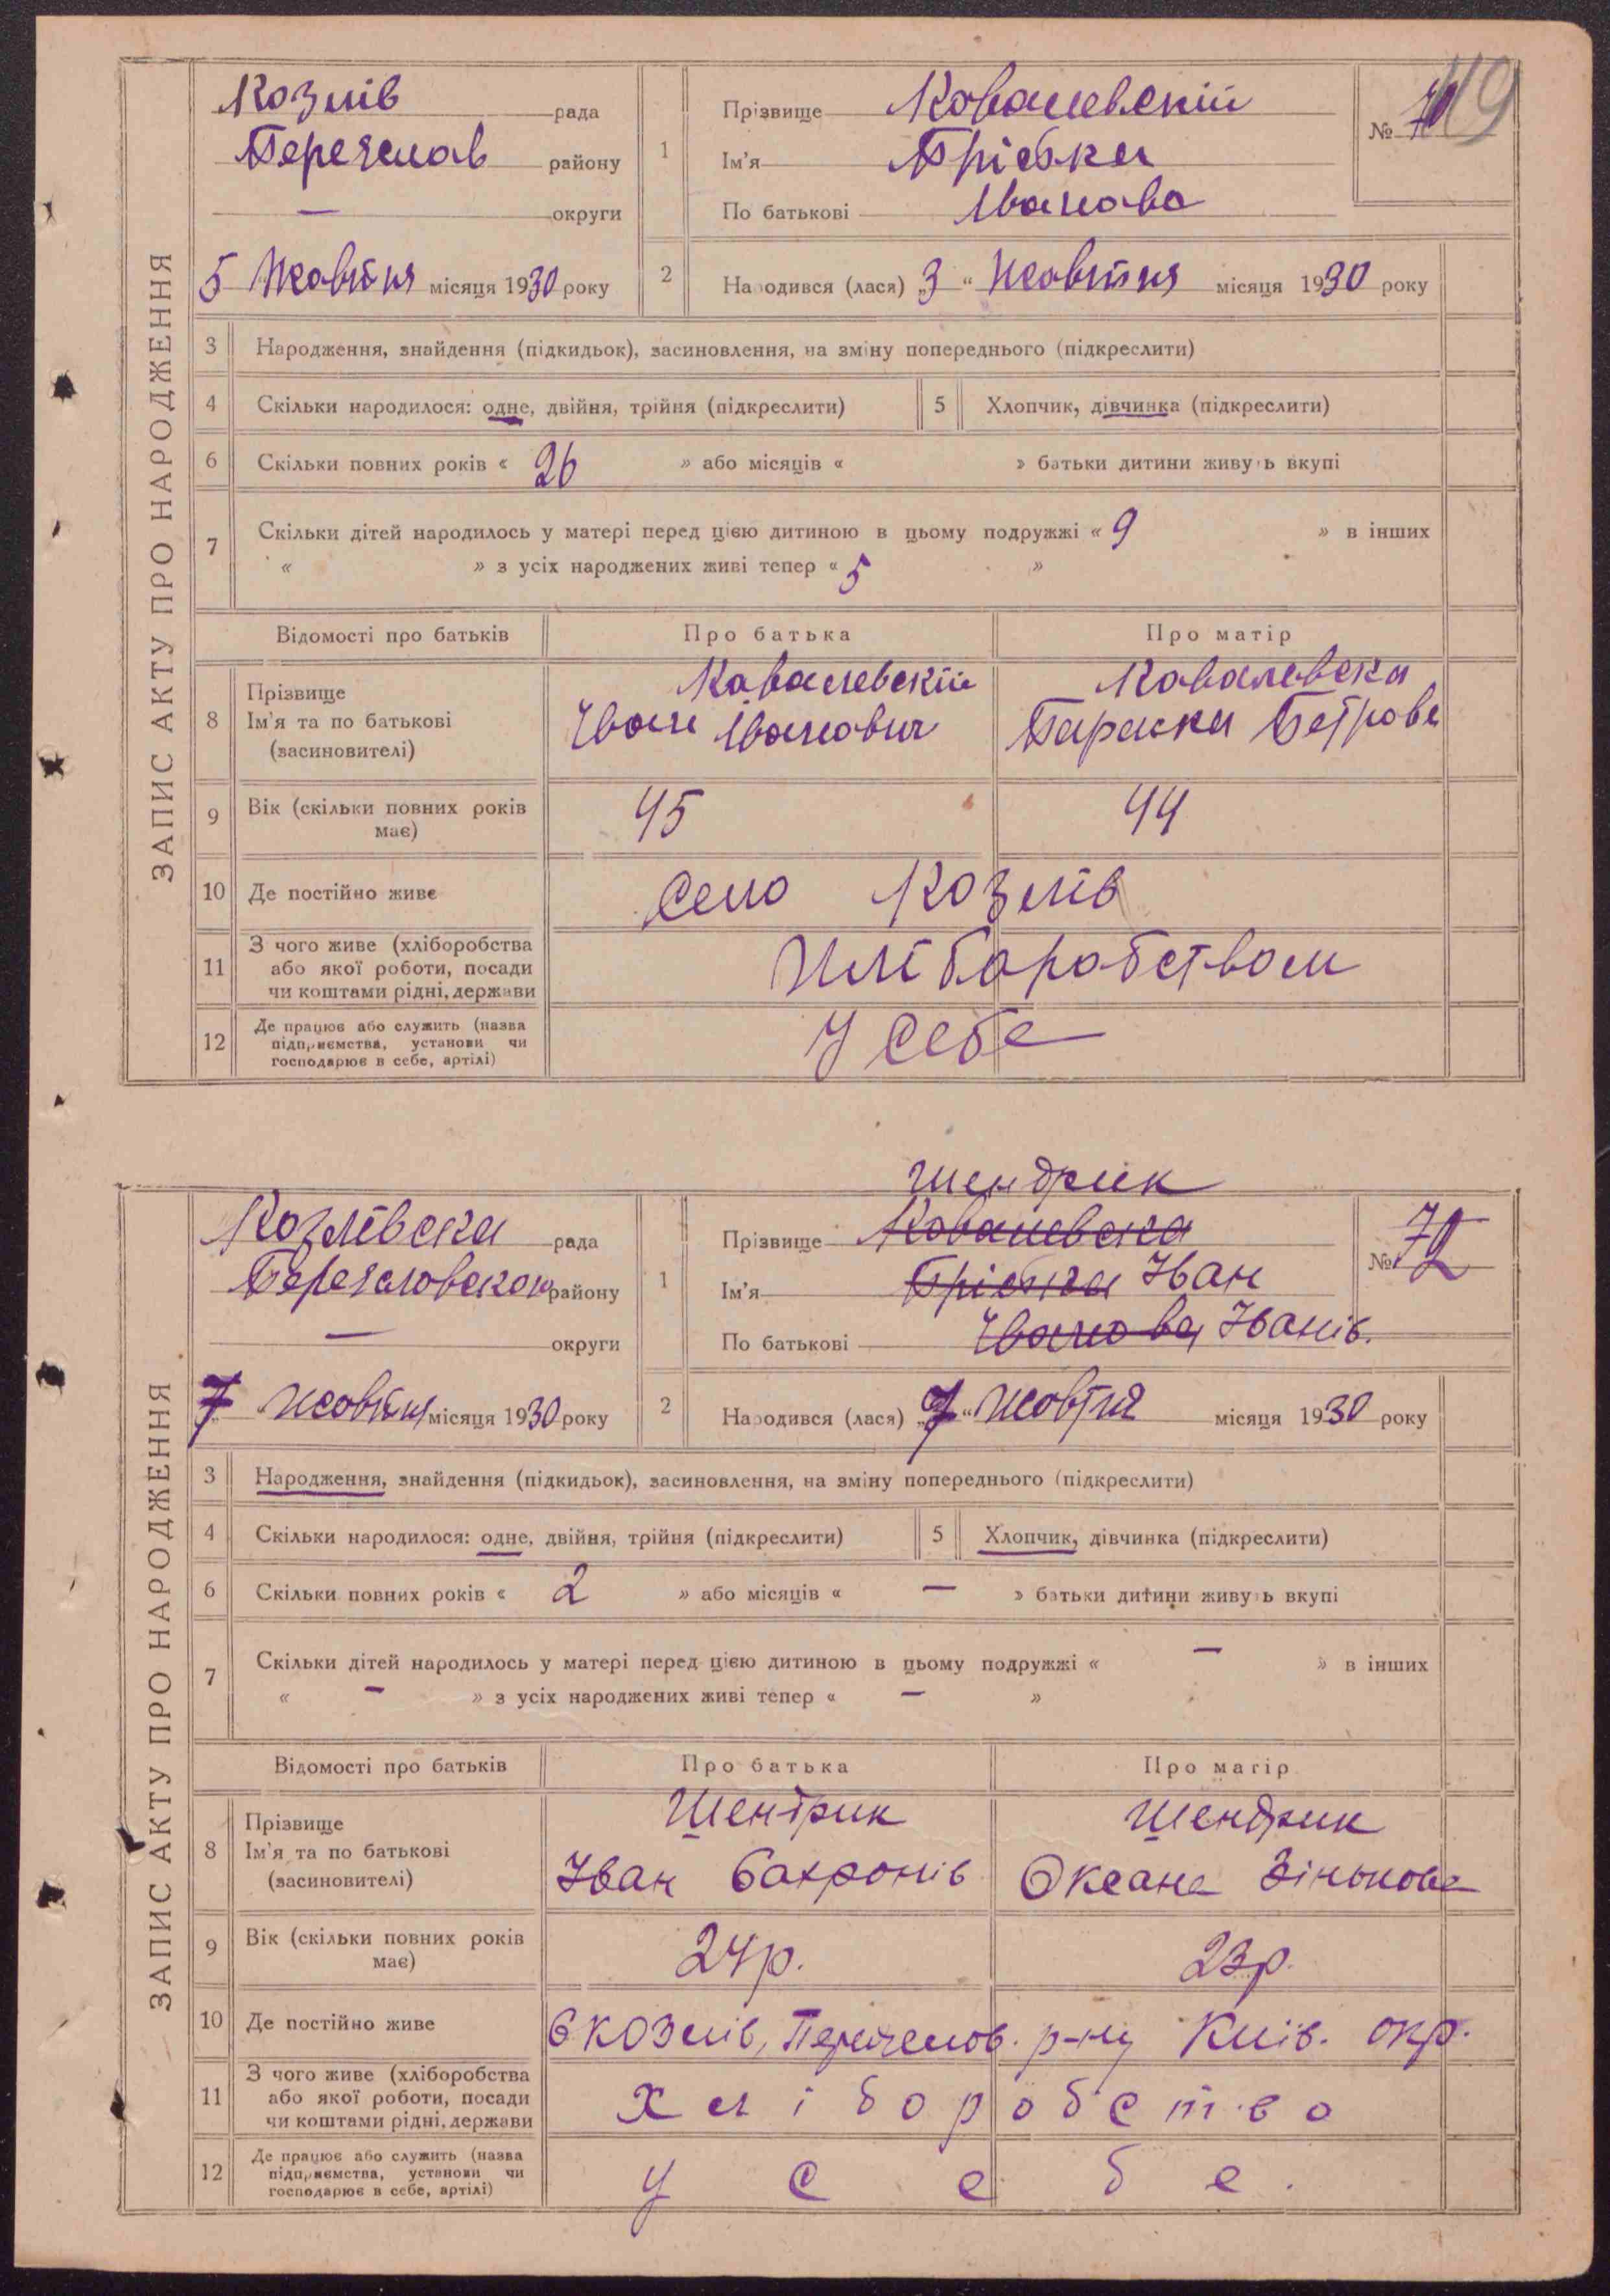 119
ЗАПИС АКТУ ПРО НАРОДЖЕННЯ
Козлів рада
Переяслав району
— округи
5 Жовтня місяця 1930 року
1 Прізвище Ковалевскій
Ім'я Прісбка
По батькові Іванова
№ 71
2 Народився (лася) „3“ Жовтня місяця 1930 року
3 Народження, знайдення (підкидьок), засиновлення, на зміну попереднього (підкреслити)
4 Скільки народилося: одне, двійня, трійня (підкреслити) 5 Хлопчик, дівчинка (підкреслити)
6 Скільки повних років « 26 » або місяців « » батьки дитини живуть вкупі
7 Скільки дітей народилось у матері перед цією дитиною в цьому подружжі « 9 » в інших
« » з усіх народжених живі тепер « 5 »
Відомості про батьків Про батька Про матір
8 Прізвище Ім'я та по батькові (засиновителі)
Кавалевскій Ковалевска
Іван Іванович Параска Петрова
9 Вік (скільки повних років має) 45 44
10 Де постійно живе село Козлів
11 З чого живе (хліборобства або якої роботи, посади чи коштами рідні, держави Хлібаработвом
12 Де працює або служить (назва підприємства, установи чи господарює в себе, артілі) У себе
ЗАПИС АКТУ ПРО НАРОДЖЕННЯ
Козлівска рада
Переяславского району
— округи
7 жовтня місяця 1930 року
Шендрик
1 Прізвище Ковалевска
Ім'я Прісбка Іван
По батькові Іванова Іванів.
№ 72
2 Народився (лася) „7“ жовтня місяця 1930 року
3 Народження, знайдення (підкидьок), засиновлення, на зміну попереднього (підкреслити)
4 Скільки народилося: одне, двійня, трійня (підкреслити) 5 Хлопчик, дівчинка (підкреслити)
6 Скільки повних років « 2 » або місяців « — » батьки дитини живуть вкупі
7 Скільки дітей народилось у матері перед цією дитиною в цьому подружжі « — » в інших
« – » з усіх народжених живі тепер « — »
Відомості про батьків Про батька Про матір
8 Прізвище Ім'я та по батькові (засиновителі)
Шендрик Шендрик
Іван Сахронів Оксана Зінькова
9 Вік (скільки повних років має) 24р. 23р.
10 Де постійно живе с Козлів, Переяслов. р-ну Київ. окр.
11 З чого живе (хліборобства або якої роботи, посади чи коштами рідні, держави хліборобство
12 Де працює або служить (назва підприємства, установи чи господарює в себе, артілі) у себе.